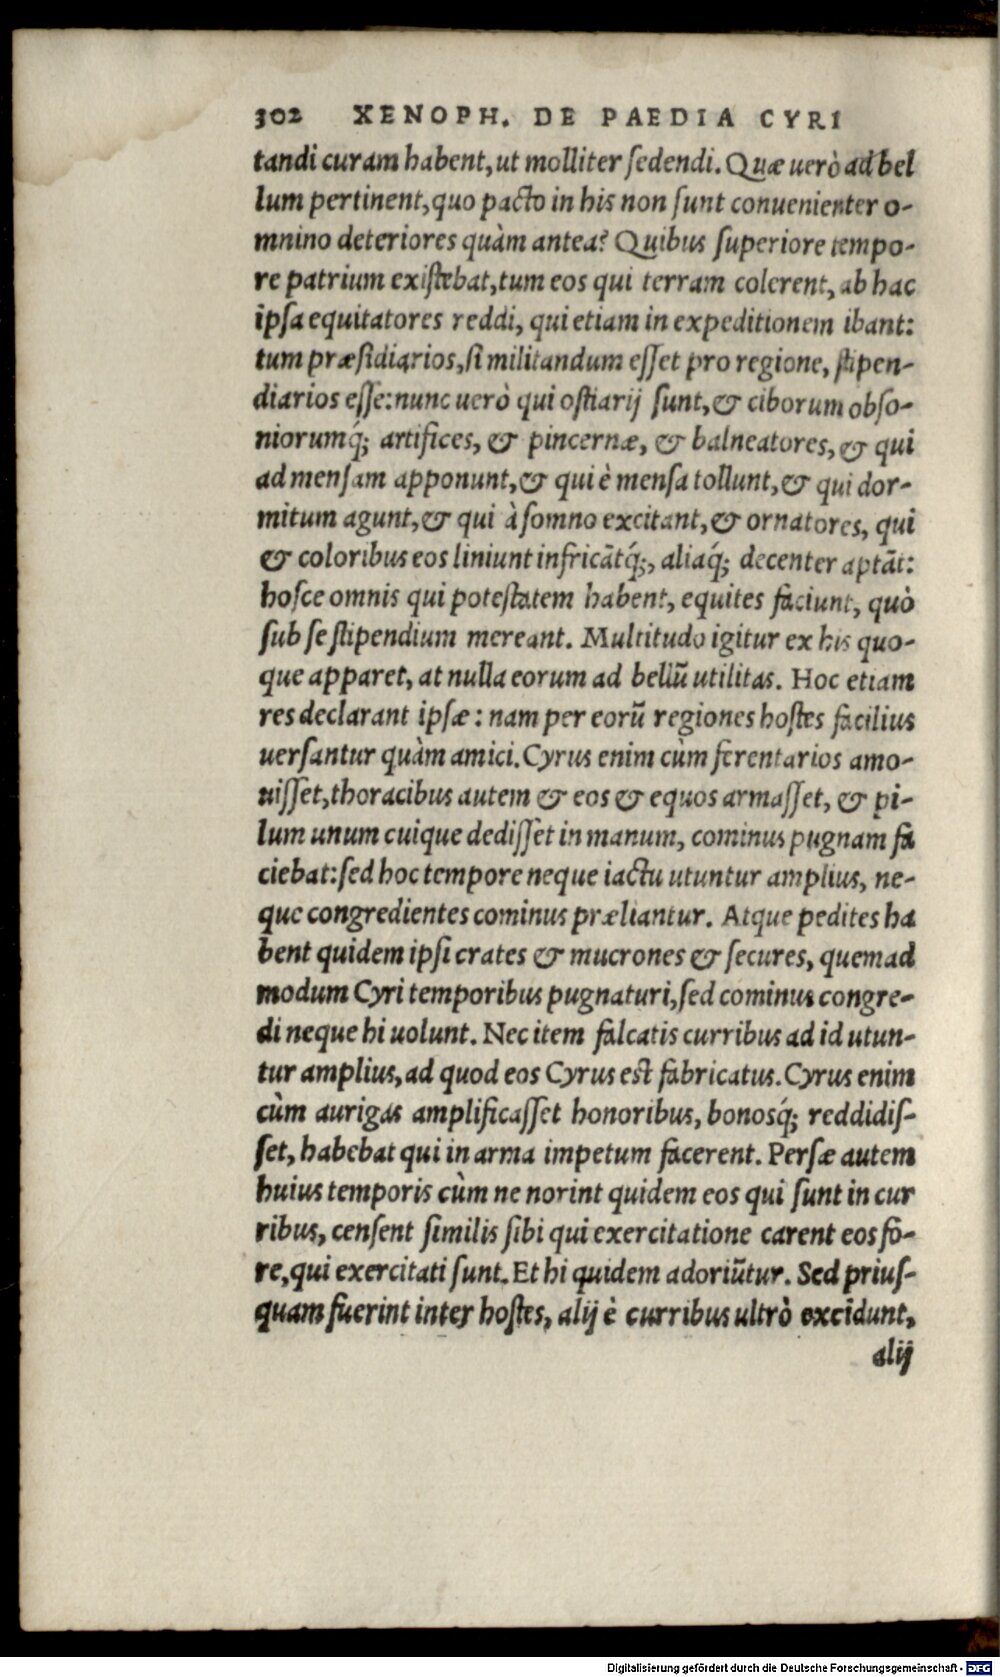 302 XENOPH. DE PAEDIA CYRI
tandi curam habent, ut molliter ſedendi. Quæ uerò ad bel
lum pertinent, quo pacto in his non ſunt conuenienter o-
mnino deteriores quàm antea? Quibus ſuperiore tempo-
re patrium exiſtebat, tum eos qui terram colerent, ab hac
ipſa equitatores reddi, qui etiam in expeditionem ibant:
tum præſidiarios, ſi militandum eſſet pro regione, ſtipen-
diarios eſſe: nunc uerò qui oſtiarij ſunt, & ciborum obſo-
niorumq́; artifices, & pincernæ, & balneatores, & qui
ad menſam apponunt, & qui è menſa tollunt, & qui dor-
mitum agunt, & qui à ſomno excitant, & ornatores, qui
& coloribus eos liniunt infricātq́;, aliaq́; decenter aptāt:
hoſce omnis qui poteſtatem habent, equites faciunt, quò
ſub ſe ſtipendium mereant. Multitudo igitur ex his quo-
que apparet, at nulla eorum ad bellū utilitas. Hoc etiam
res declarant ipſæ: nam per eorū regiones hoſtes facilius
uerſantur quàm amici. Cyrus enim cùm ferentarios amo-
uiſſet, thoracibus autem & eos & equos armaſſet, & pi-
lum unum cuique dediſſet in manum, cominus pugnam fa
ciebat: ſed hoc tempore neque iactu utuntur amplius, ne-
que congredientes cominus præliantur. Atque pedites ha
bent quidem ipſi crates & mucrones & ſecures, quemad
modum Cyri temporibus pugnaturi, ſed cominus congre-
di neque hi uolunt. Nec item falcatis curribus ad id utun-
tur amplius, ad quod eos Cyrus eſt fabricatus. Cyrus enim
cùm aurigas amplificaſſet honoribus, bonosq́; reddidiſ-
ſet, habebat qui in arma impetum facerent. Perſæ autem
huius temporis cùm ne norint quidem eos qui ſunt in cur
ribus, cenſent ſimilis ſibi qui exercitatione carent eos fo-
re, qui exercitati ſunt. Et hi quidem adoriūtur. Sed priuſ-
quam fuerint inter hoſtes, alij è curribus ultrò excidunt,
alij
Digitalisierung gefördert durch die Deutsche Forschungsgemeinschaft - DFG